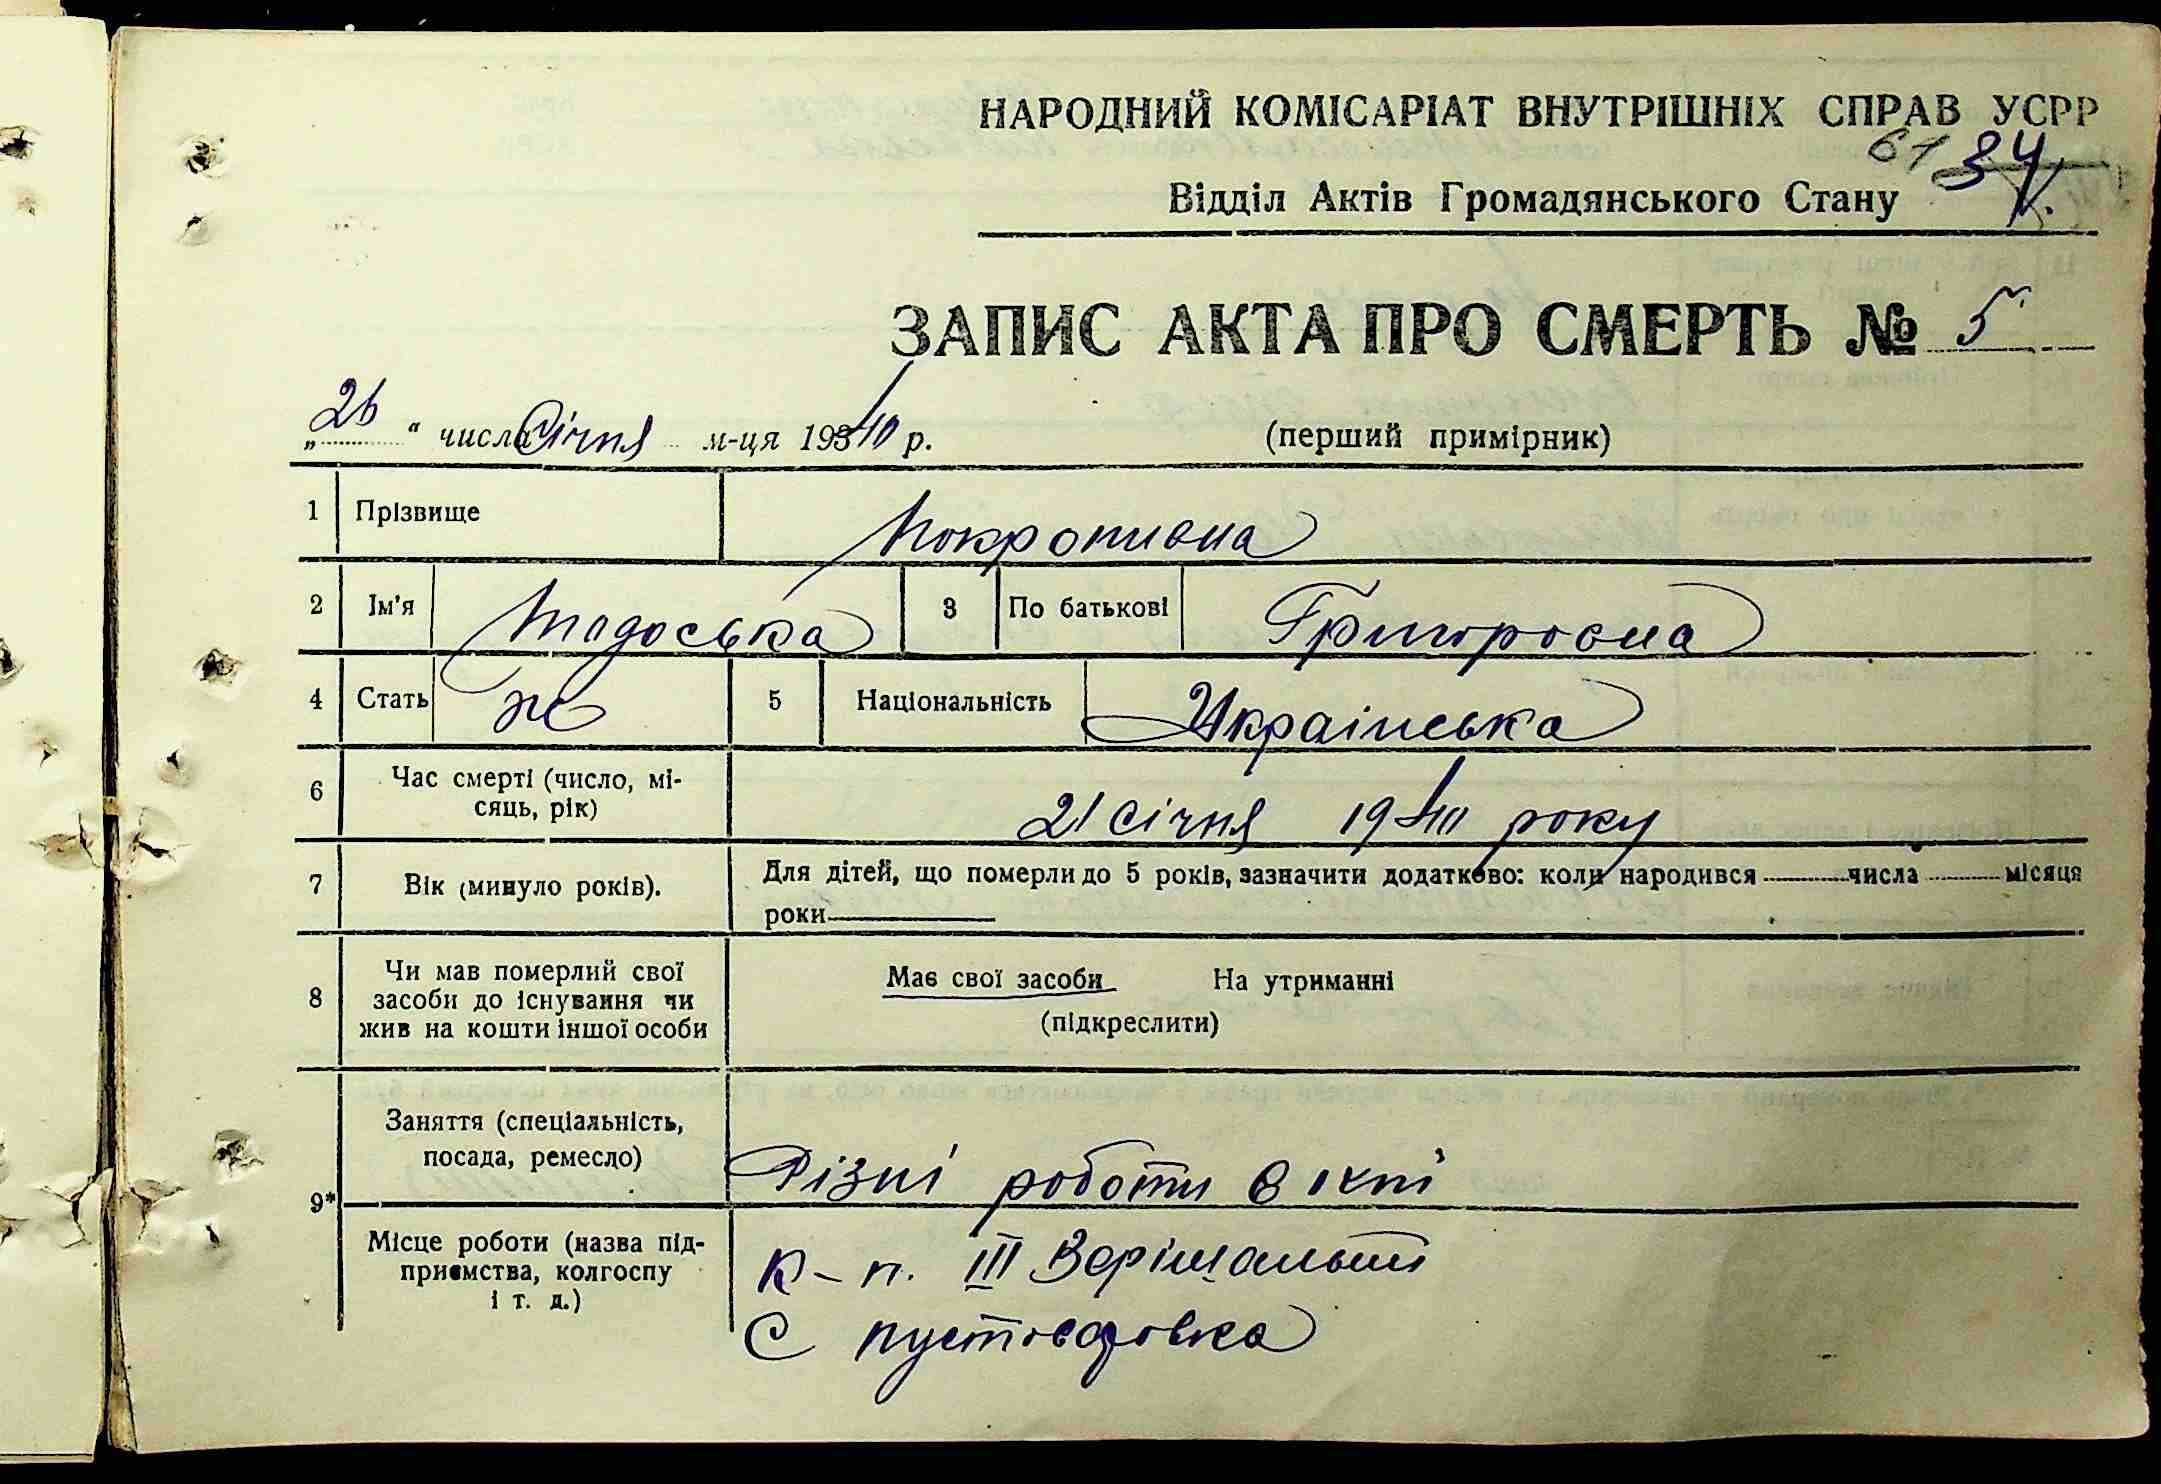 НАРОДНИЙ КОМІСАРІАТ ВНУТРІШНІХ СПРАВ УСРР
61 34
Відділ Актів Громадянського Стану
ЗАПИС АКТА ПРО СМЕРТЬ № 5
„26" числа Січня м-ця 19340 р. (перший примірник)
1 Прізвище Покропивна
2 Ім'я Тодоська 3 По батькові Григоровна
4 Стать ж 5 Національність Українська
6 Час смерті (число, мі-
сяць, рік) 21 січня 1940 року
7 Вік (минуло років). Для дітей, що померли до 5 років, зазначити додатково: коли народився числа місяця
роки
8 Чи мав померлий свої
засоби до існування чи
жив на кошти іншої особи
Має свої засоби На утриманні
(підкреслити)
9* Заняття (спеціальність,
посада, ремесло) Різні роботи в
Місце роботи (назва під-
приємства, колгоспу
і т. д.)
к-п. III
с пустоваровка